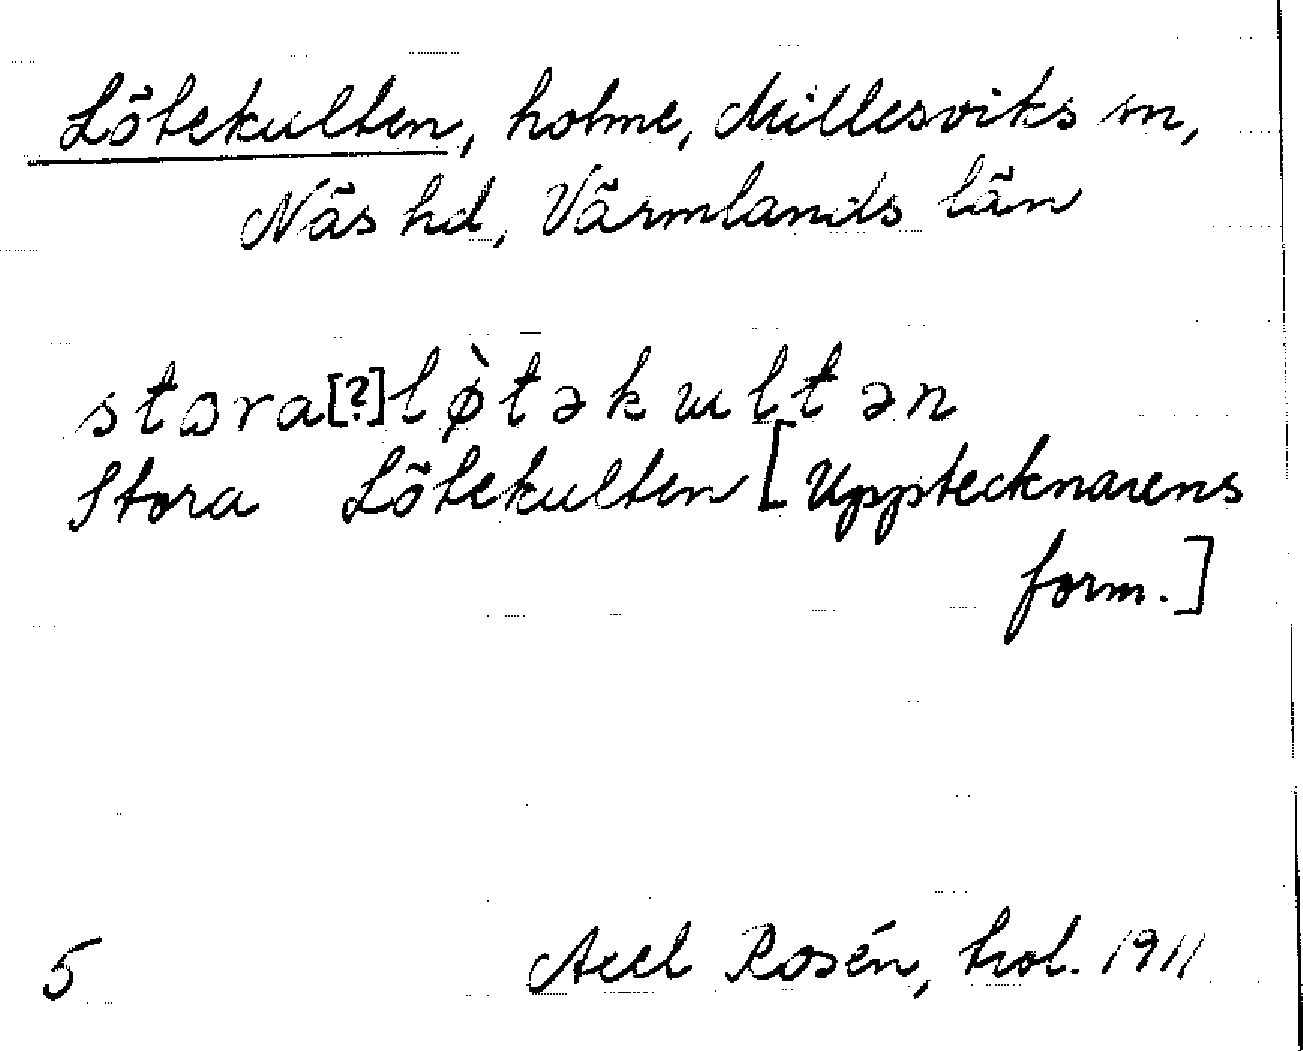 Lötekulten, holme, Millesviks sn,
Näs hd, Värmlands län
stora[?]lø̀təkultən
Stora Lötekulten [Upptecknarens
form.]
5 Axel Rosén, trol. 1911